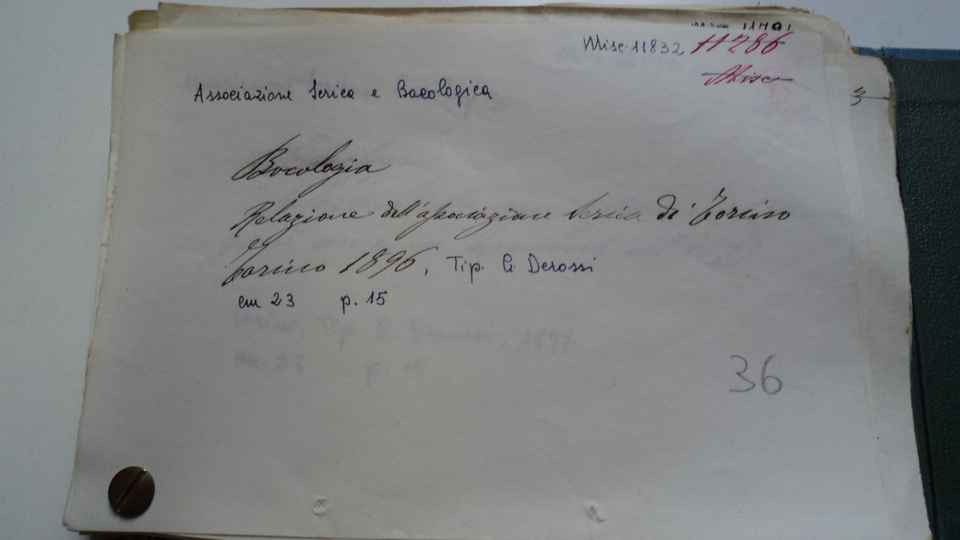 Misc. 11832 11286
Misc
3
Associazione Serica e Bacologica
Bocologia
Relazione dell'associazione Serica di Torino
Torino 1896, Tip. G Derossi
cm 23 p. 15
36